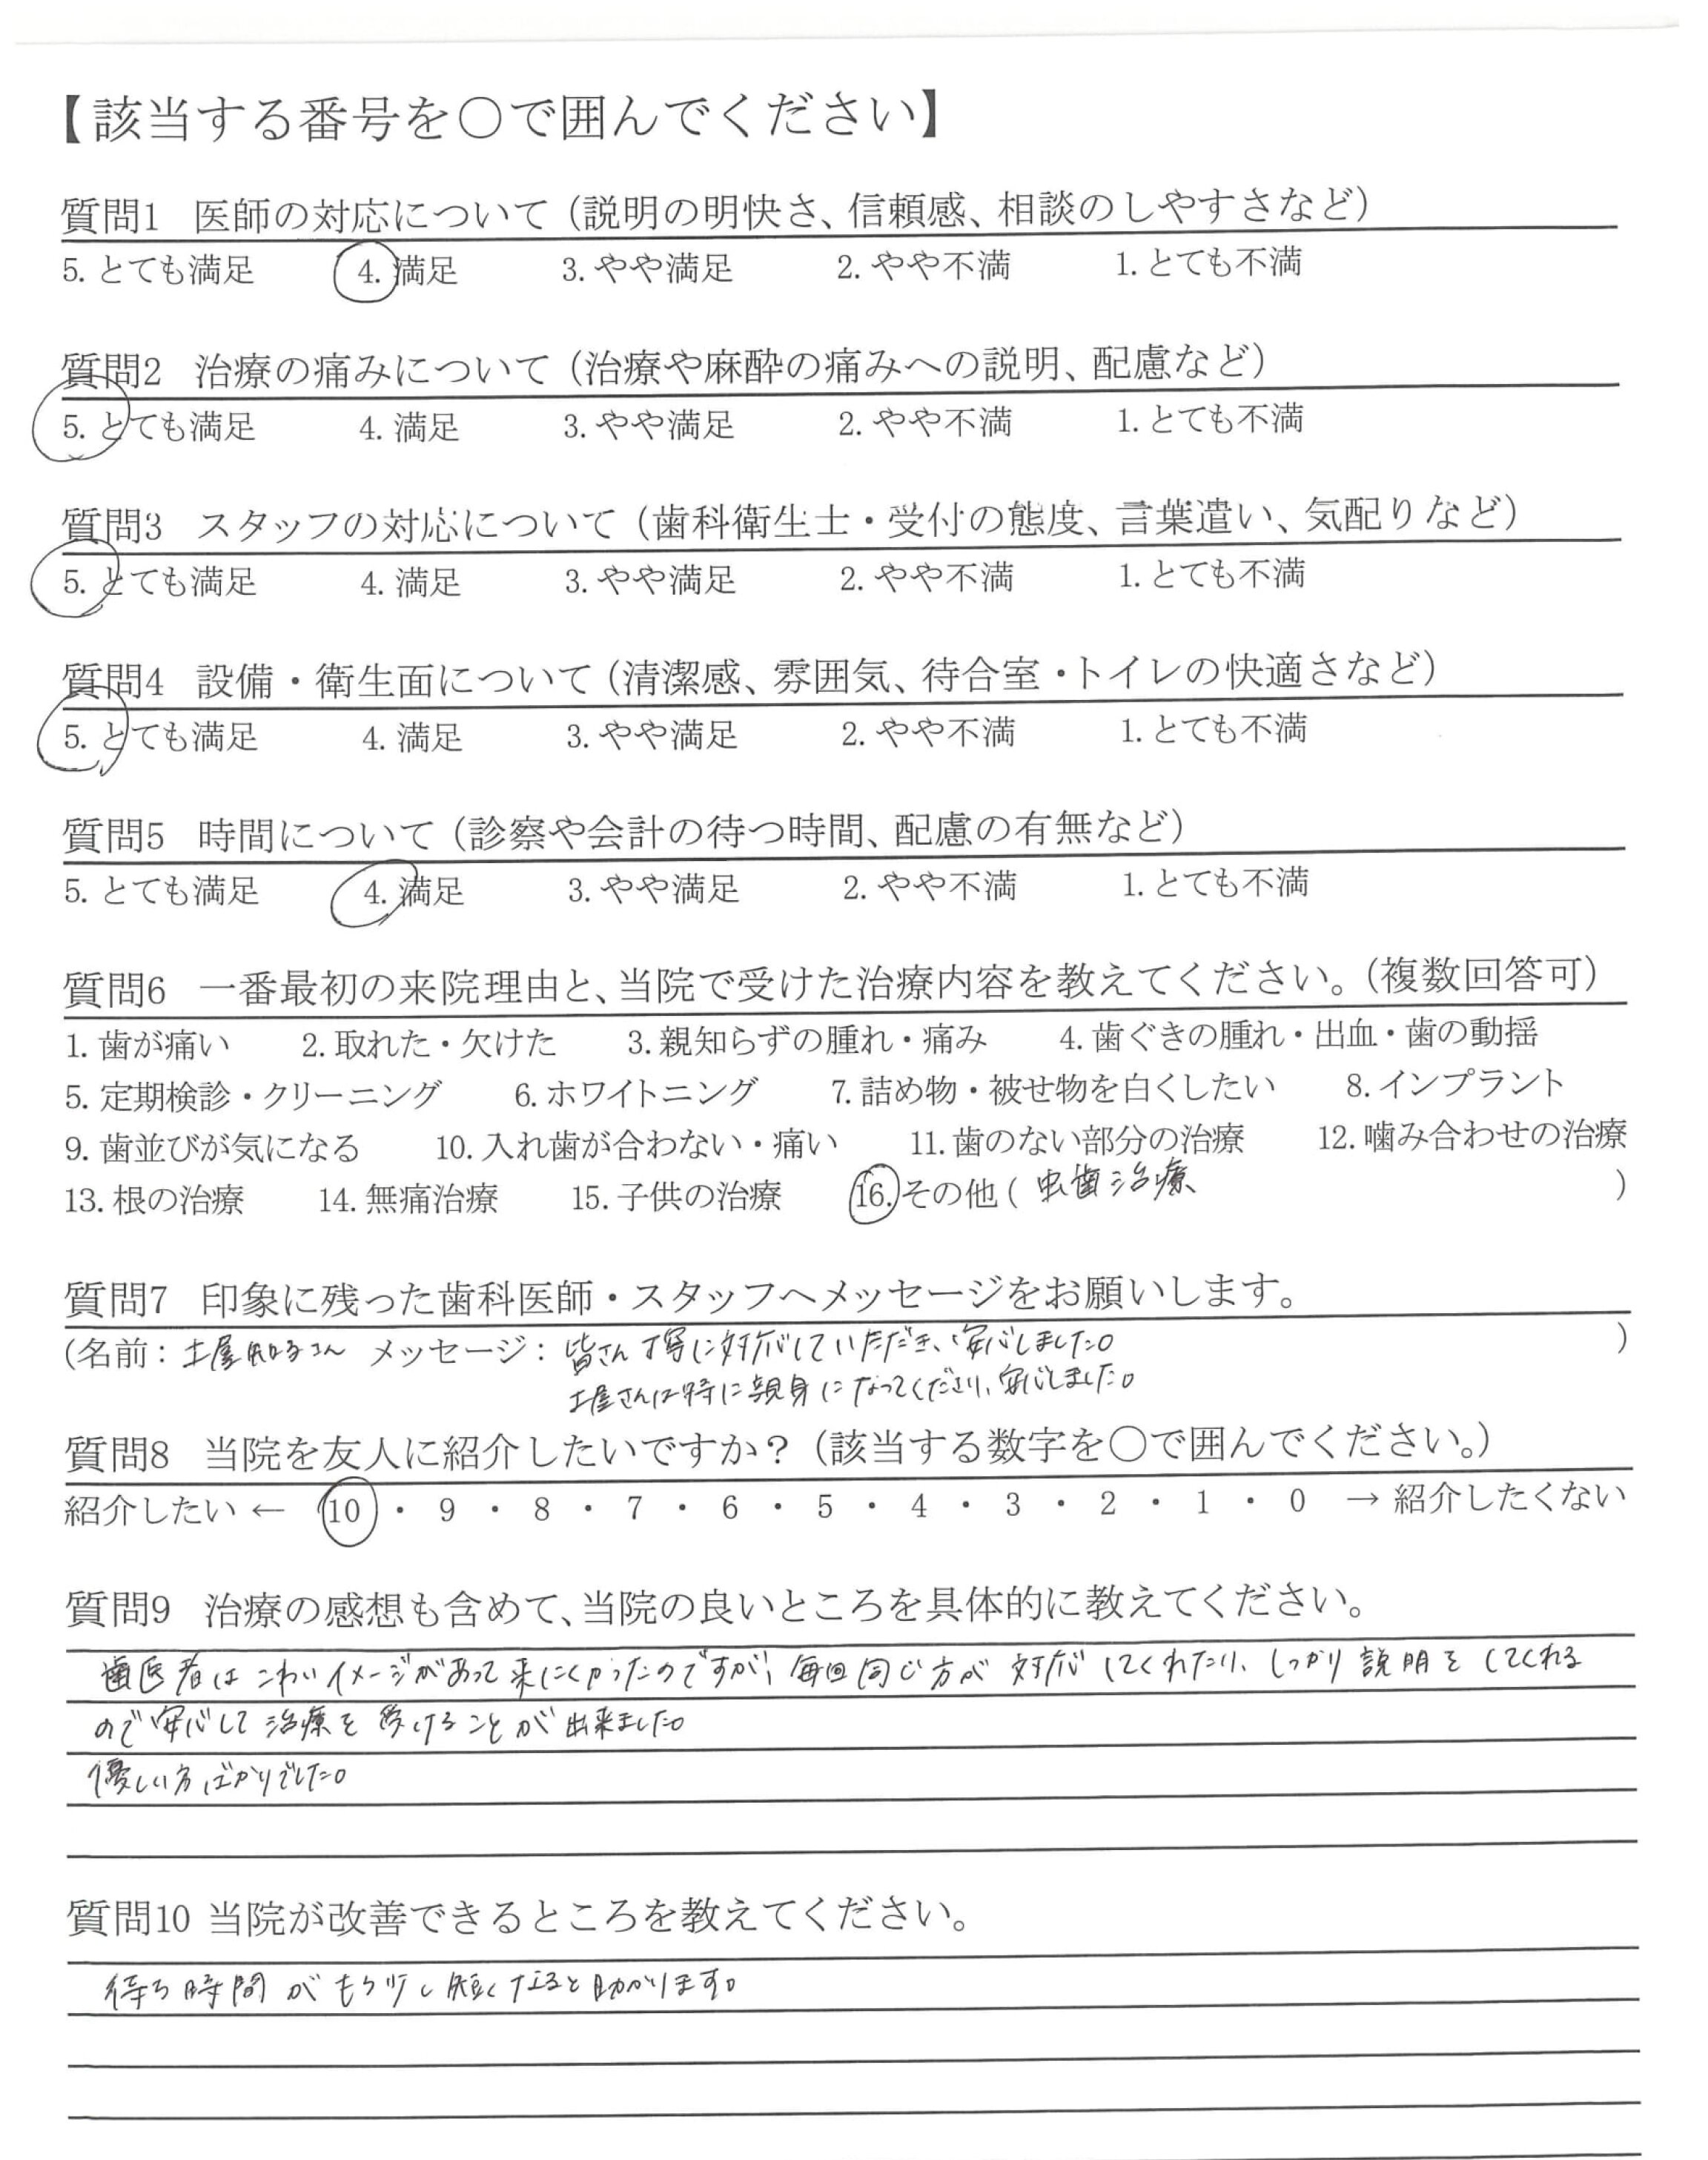 【該当する番号を○で囲んでください】
質問1 医師の対応について（説明の明快さ、信頼感、相談のしやすさなど）
5. とても満足 4. 満足 3. やや満足 2. やや不満 1. とても不満
質問2 治療の痛みについて（治療や麻酔の痛みへの説明、配慮など）
5. とても満足 4. 満足 3. やや満足 2. やや不満 1. とても不満
質問3 スタッフの対応について（歯科衛生士・受付の態度、言葉遣い、気配りなど）
5. とても満足 4. 満足 3. やや満足 2. やや不満 1. とても不満
質問4 設備・衛生面について（清潔感、雰囲気、待合室・トイレの快適さなど）
5. とても満足 4. 満足 3. やや満足 2. やや不満 1. とても不満
質問5 時間について（診察や会計の待つ時間、配慮の有無など）
5. とても満足 4. 満足 3. やや満足 2. やや不満 1. とても不満
質問6 一番最初の来院理由と、当院で受けた治療内容を教えてください。（複数回答可）
1. 歯が痛い 2. 取れた・欠けた 3. 親知らずの腫れ・痛み 4. 歯ぐきの腫れ・出血・歯の動揺
5. 定期検診・クリーニング 6. ホワイトニング 7. 詰め物・被せ物を白くしたい 8. インプラント
9. 歯並びが気になる 10. 入れ歯が合わない・痛い 11. 歯のない部分の治療 12. 噛み合わせの治療
13. 根の治療 14. 無痛治療 15. 子供の治療 16. その他（ 虫歯治療 ）
質問7 印象に残った歯科医師・スタッフへメッセージをお願いします。
（名前：土屋 さん メッセージ：皆さん丁寧に対応していただき、安心しました。 ）
土屋さんは特に親身になってくださり、安心しました。
質問8 当院を友人に紹介したいですか？（該当する数字を○で囲んでください。）
紹介したい ← 10 ・ 9 ・ 8 ・ 7 ・ 6 ・ 5 ・ 4 ・ 3 ・ 2 ・ 1 ・ 0 → 紹介したくない
質問9 治療の感想も含めて、当院の良いところを具体的に教えてください。
歯医者はこわいイメージがあって来にくかったのですが、毎回同じ方が対応してくれたり、しっかり説明をしてくれる
ので安心して治療を受けることが出来ました。
優しい方ばかりでした。
質問10 当院が改善できるところを教えてください。
待ち時間がもう少し短くなると助かります。